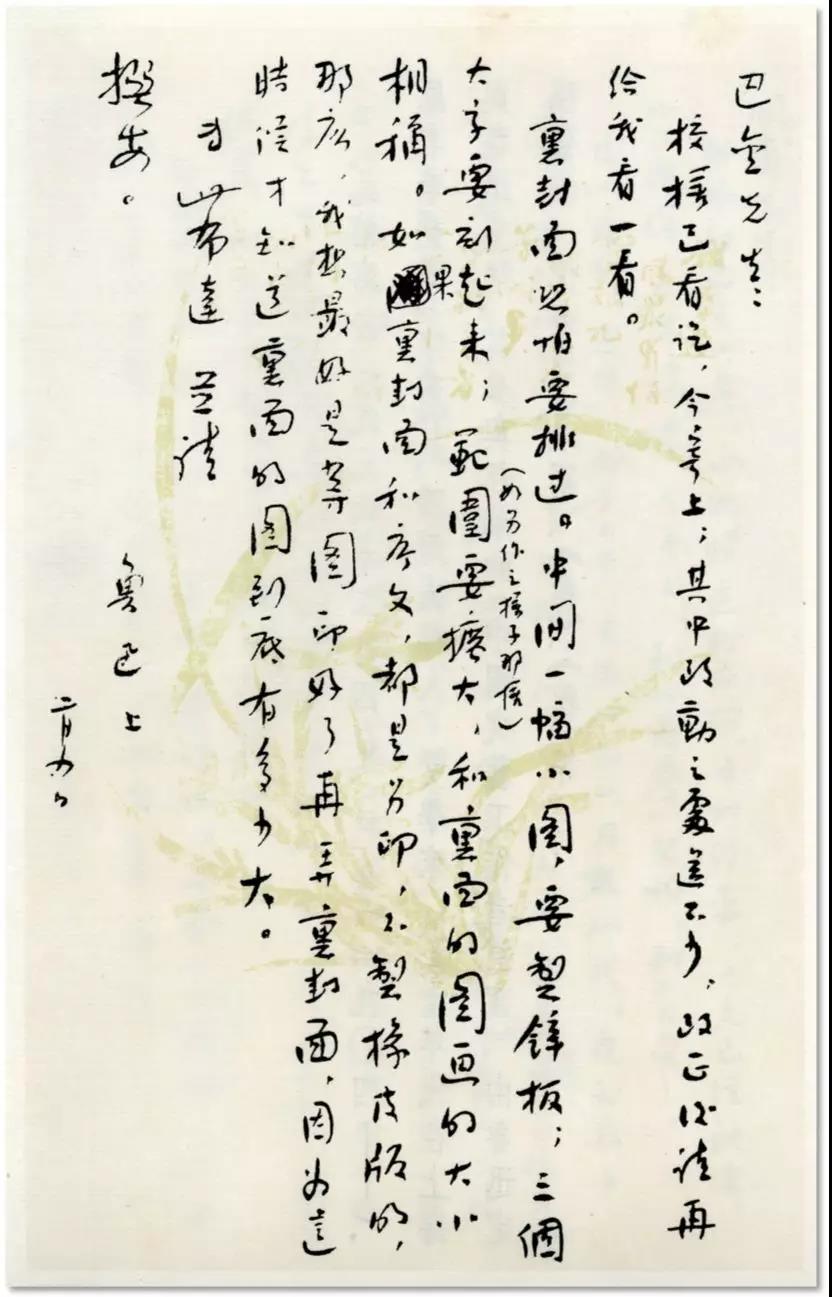 巴金先生：
校樣已看訖，今寄上；其中改動之處還不少，改正後請再
給我看一看。
裏封面恐怕要排过。中间一幅小圖，要製鋅板；三個
（如另作之樣子那樣）
大字要刻起来；範圍要擴大，和裏面的圖画的大小
相稱。如果裏封面和序文，都是另印，不製橡皮版的，
那么，我想最好是等圖印好了再弄裏封面，因为這
時候才知道裏面的圖到底有多少大。
專此布達 並請
撰安。
魯迅上
二月四日